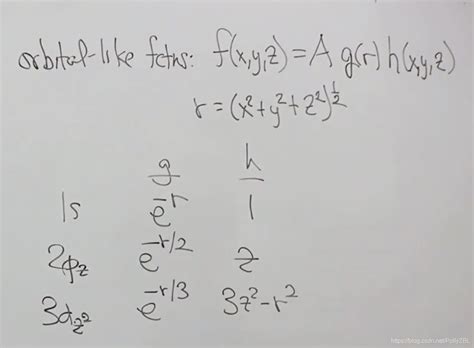 orbital-like fctns: f(x,y,z) = A g(r) h(x,y,z)
r = (x²+y²+z²)^½
g h
1s e^-r 1
2p_z e^-r/2 z
3d_z² e^-r/3 3z²-r²
https://blog.csdn.net/PollyZBL